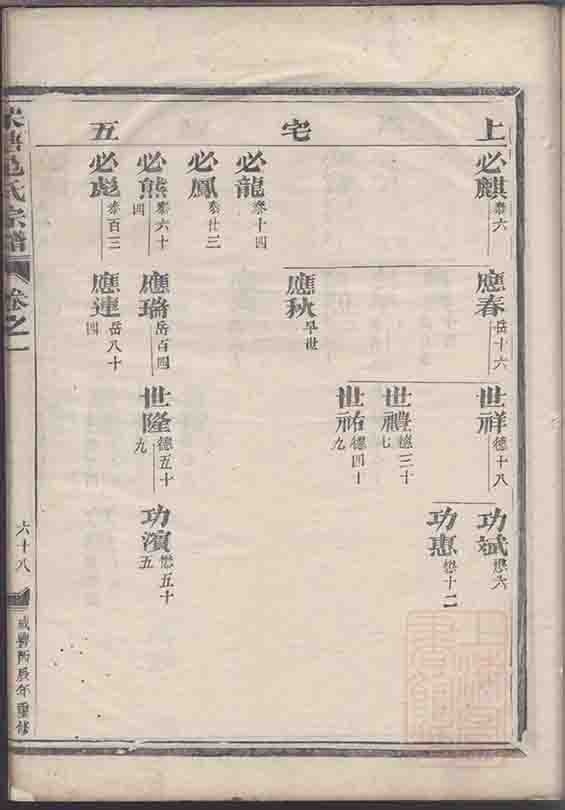 上宅五
必麒 泰六
必龍 泰十四
必鳳 泰廿三
必熊 泰六十四
必彪 泰百三
應春 岳十六
應秋 早世
應瑞 岳百四
應連 岳八十四
世祥 德十八
世禮 德三十七
世祐 德四十九
世隆 德五十九
功斌 懋六
功惠 懋十二
功濱 懋五十五
氏宗譜
卷之一
六十八
咸豐丙辰年重修